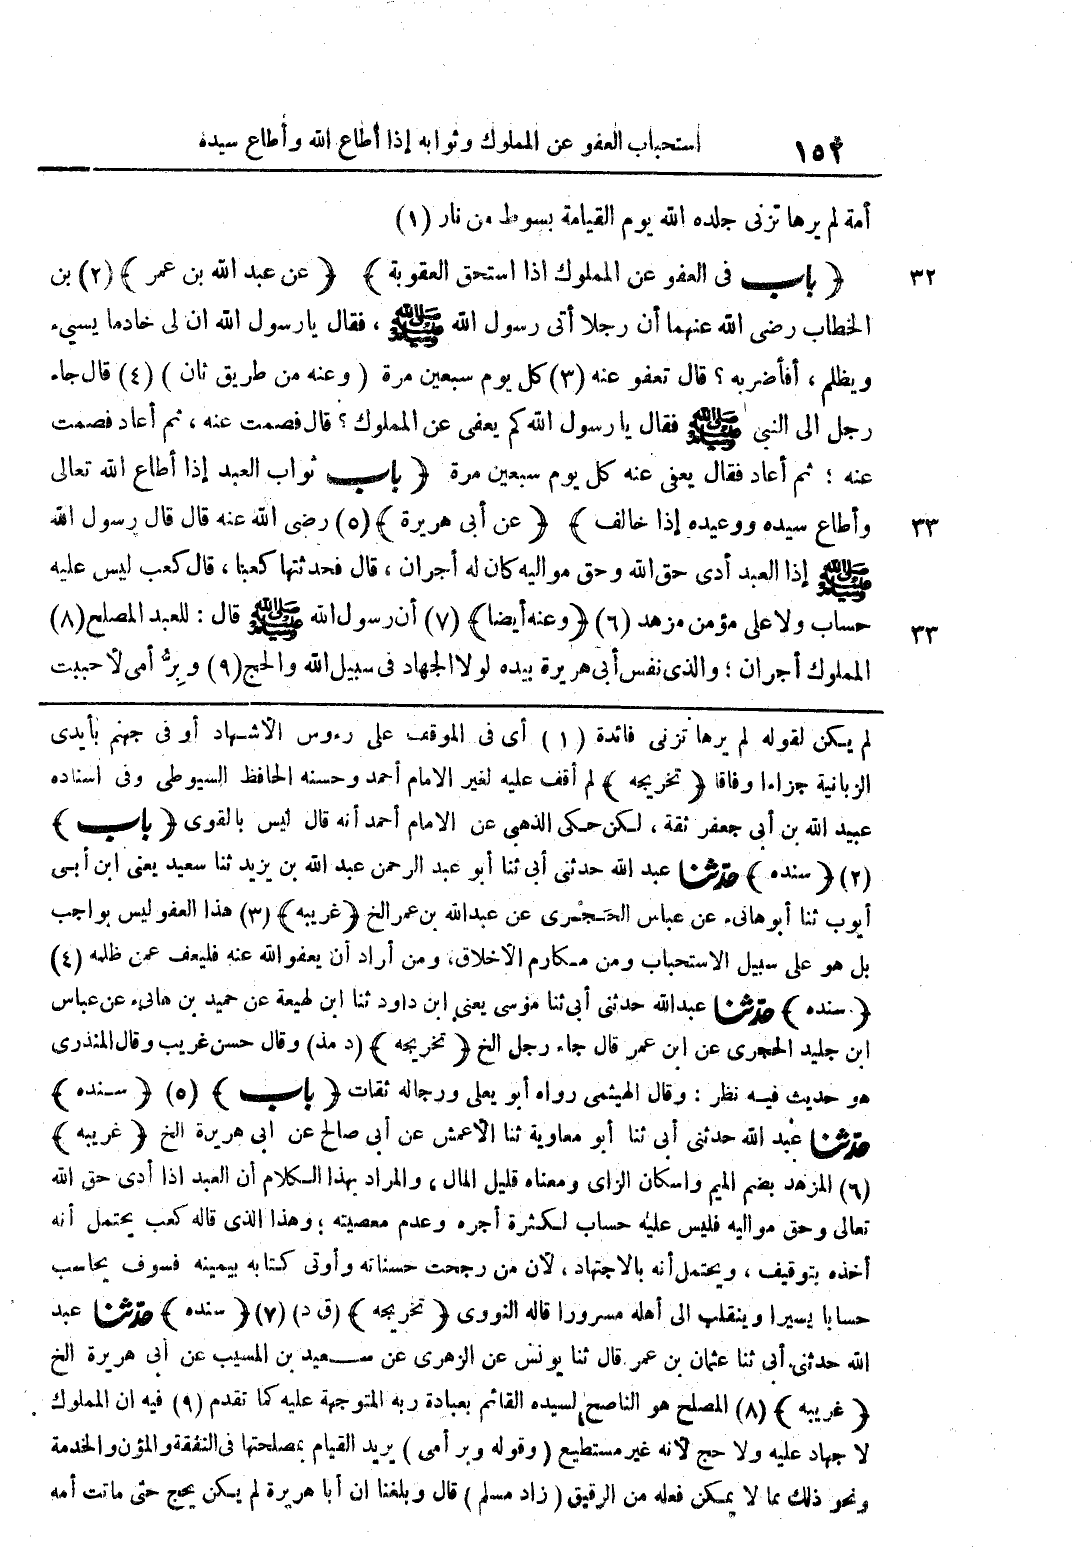 ١٥٢ استحباب العفو عن المملوك وثوابه إذا أطاع الله وأطاع سيده
أمة لم يرها تزنى جلده الله يوم القيامة بسوط من نار (١)
٣٢ ﴿ باب فى العفو عن المملوك اذا استحق العقوبة ﴾ ﴿ عن عبد الله بن عمر ﴾ (٢) بن
الخطاب رضى الله عنهما أن رجلا أتى رسول الله ﷺ ، فقال يارسول الله ان لى خادما يسيء
ويظلم ، أفأضربه ؟ قال تعفو عنه (٣) كل يوم سبعين مرة ( وعنه من طريق ثان ) (٤) قال جاء
رجل الى النبى ﷺ فقال يا رسول الله كم يعفى عن المملوك ؟ قال فصمت عنه ، ثم أعاد فصمت
عنه ؛ ثم أعاد فقال يعفى عنه كل يوم سبعين مرة ﴿ باب ثواب العبد إذا أطاع الله تعالى
٣٣ وأطاع سيده ووعيده إذا خالف ﴾ ﴿ عن أبى هريرة ﴾ (٥) رضى الله عنه قال قال رسول الله
ﷺ إذا العبد أدى حق الله وحق مواليه كان له أجران ، قال فحدثتها كعبا ، قال كعب ليس عليه
٣٣ حساب ولا على مؤمن مزهد (٦) ﴿ وعنه أيضا ﴾ (٧) أن رسول الله ﷺ قال : للعبد المصلح (٨)
المملوك أجران ؛ والذى نفس أبى هريرة بيده لولا الجهاد فى سبيل الله والحج (٩) وبرُّ أمى لأحببت
لم يكن لقوله لم يرها تزنى فائدة (١) أى فى الموقف على رءوس الأشهاد أو فى جهنم بأيدى
الزبانية جزاءا وفاقا ﴿ تخريجه ﴾ لم أقف عليه لغير الامام أحمد وحسنه الحافظ السيوطى وفى اسناده
عبيد الله بن أبى جعفر ثقة ، لكن حكى الذهبى عن الامام أحمد أنه قال ليس بالقوى ﴿ باب ﴾
(٢) ﴿ سنده ﴾ حدثنا عبد الله حدثنى أبى ثنا أبو عبد الرحمن عبد الله بن يزيد ثنا سعيد يعنى ابن أبى
أيوب ثنا أبو هانىء عن عباس الحَجْرى عن عبدالله بن عمر الخ ﴿ غريبه ﴾ (٣) هذا العفو ليس بواجب
بل هو على سبيل الاستحباب ومن مكارم الأخلاق، ومن أراد أن يعفو الله عنه فليعف عمن ظلمه (٤)
﴿ سنده ﴾ حدثنا عبدالله حدثنى أبى ثنا موسى يعنى ابن داود ثنا ابن لهيعة عن حميد بن هانىء عن عباس
ابن جليد الحجرى عن ابن عمر قال جاء رجل الخ ﴿ تخريجه ﴾ (د مذ) وقال حسن غريب وقال المنذرى
هو حديث فيه نظر : وقال الهيثمى رواه أبو يعلى ورجاله ثقات ﴿ باب ﴾ (٥) ﴿ سنده ﴾
حدثنا عبد الله حدثنى أبى ثنا أبو معاوية ثنا الأعمش عن أبى صالح عن ابى هريرة الخ ﴿ غريبه ﴾
(٦) المزهد بضم الميم واسكان الزاى ومعناه قليل المال ، والمراد بهذا الكلام أن العبد اذا أدى حق الله
تعالى وحق مواليه فليس عليه حساب لكثرة أجره وعدم معصيته ؛ وهذا الذى قاله كعب يحتمل أنه
أخذه بتوقيف ، ويحتمل أنه بالاجتهاد ، لأن من رجحت حسناته وأوتى كتابه بيمينه فسوف يحاسب
حسابا يسيرا وينقلب الى أهله مسرورا قاله النووى ﴿ تخريجه ﴾ (ق د) (٧) ﴿ سنده ﴾ حدثنا عبد
الله حدثنى أبى ثنا عثمان بن عمر قال ثنا يونس عن الزهرى عن سعيد بن المسيب عن أبى هريرة الخ
﴿ غريبه ﴾ (٨) المصلح هو الناصح لسيده القائم بعبادة ربه المتوجهة عليه كما تقدم (٩) فيه ان المملوك
لا جهاد عليه ولا حج لأنه غير مستطيع ( وقوله وبر أمى ) يريد القيام بمصلحتها فى النفقة والمؤن والخدمة
ونحو ذلك مما لا يمكن فعله من الرقيق ( زاد مسلم ) قال وبلغنا ان أبا هريرة لم يكن يحج حتى ماتت أمه